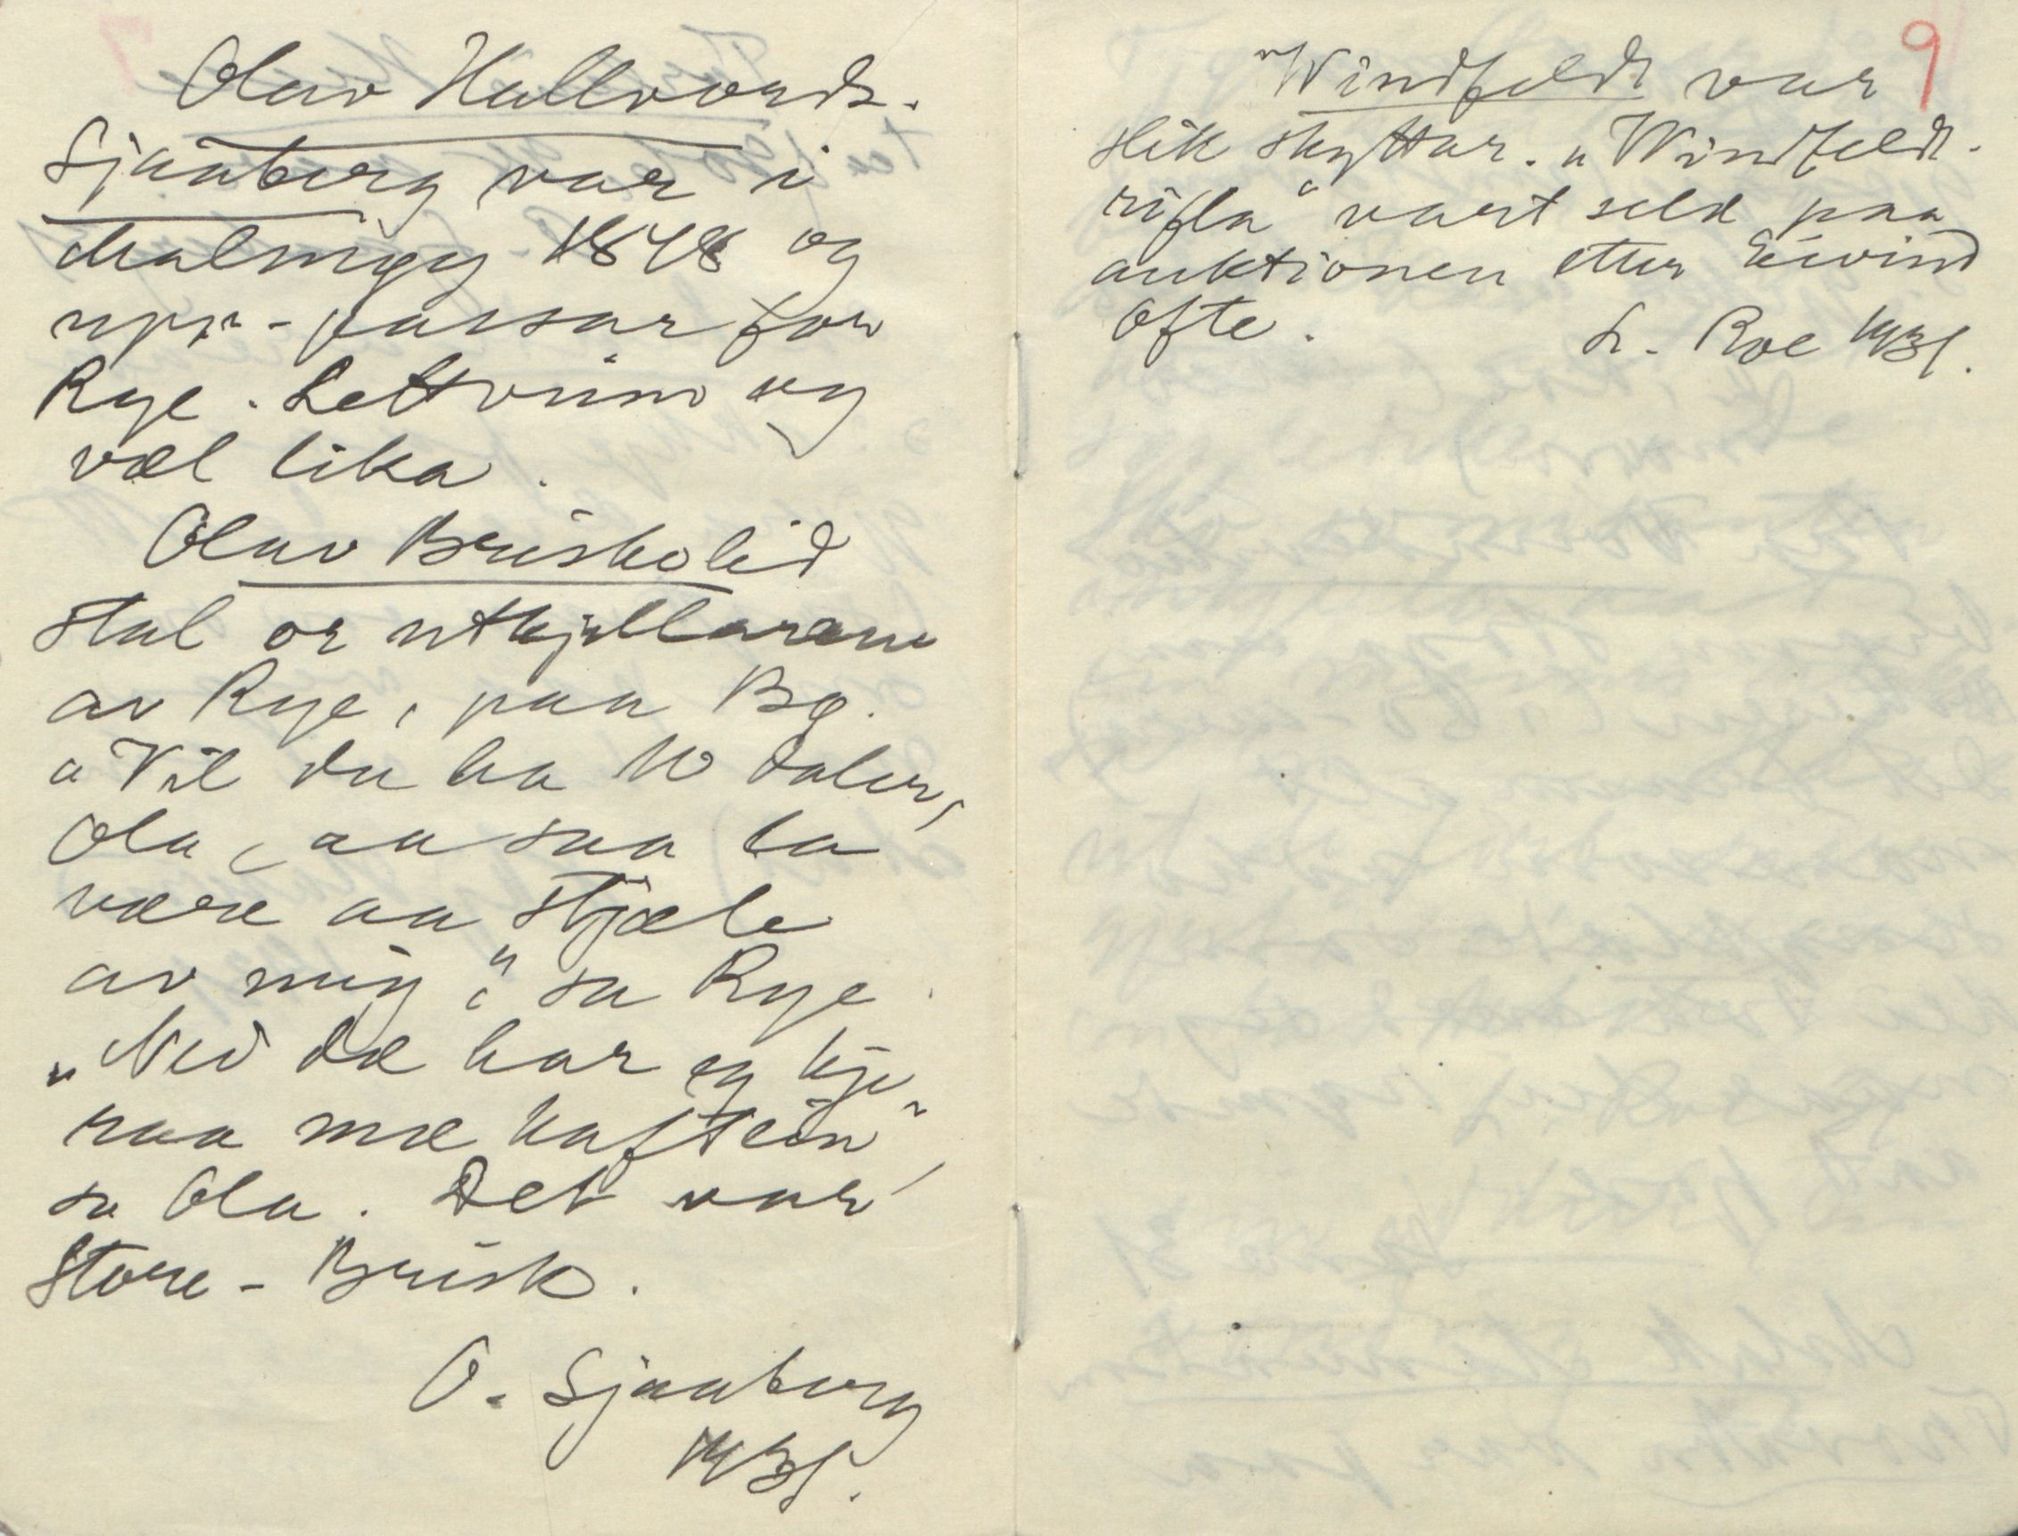 Olav Hallvords-
Sjaaberg var i
Malmøy 1848 og
upp-passar for
Rye. Lettvinn og
væl lika.
Olav Briskelid
stal or utkjellaren
av Rye, paa Bø.
„Vil du ha 10 daler,
Ola, aa saa la
være aa stjæle
av mig," sa Rye.
„Nei dæ har eg kje
raa mæ kaftein"
sa Ola. Det var
Store-Brisk.
O. Sjaaberg
1931.
9
"Windfeldt var
slik skyttar. „Windfeldt-
rifla" vart seld paa
auktionen etter Eivind
Ofte.
L. Roe 1931.